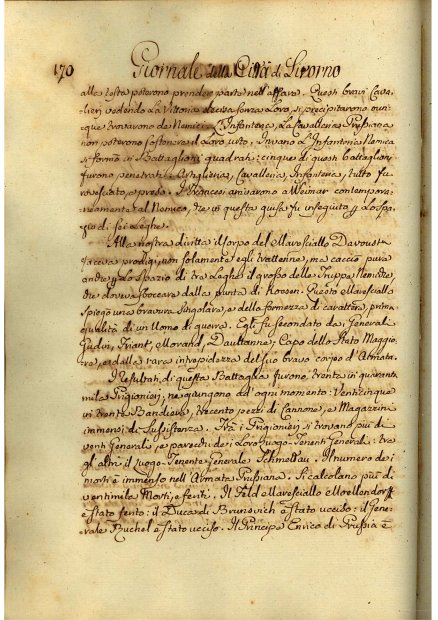 170
Giornale della Città di Livorno
alla testa poterono prendere parte nell'affare. Questi bravi Cava-
lieri vedendo La Vittoria decisa senza Loro, si precipitarono ovun-
que trovarono de Nemici. L'Infanteria, La Cavalleria Prussiana
non poterono sostenere il Loro urto. Invano L'Infanteria Nemica
si formò in Battaglioni quadrati: cinque di questi battaglioni
furono penetrati: Artiglieria, Cavalleria, Infanteria, tutto fu
rovesciato, e preso. I Francesi arrivarono a Weimar contempora-
neamente al Nemico, che in questa guisa fu inseguito p. Lo spa-
zio di sei Leghe.
Alla nostra diritta il Corpo del Maresciallo Davoust
faceva prodigi, non solamente egli trattenne, ma cacciò pura
anche p. Lo spazio di tre Leghe il grosso delle Truppe Nemiche,
che doveva sboccare dalla parte di Koesen. Questo Maresciallo
spiegò una bravura singolare, e della fermezza di carattere, prima
qualità di un Uomo di guerra. Egli fu secondato da i Generali
Gudin, Friant, Morand, Daultanne, Capo dello Stato Maggio-
re, e dalla rara intrepidezza del suo bravo corpo d'Armata.
I resultati di questa Battaglia furono trenta in quaranta
mila Prigionieri, ne giungono ad ogni momento: Venticinque
in trenta Bandiere, trecento pezzi di Cannone, e Magazzini
immensi di Sussistenza. Frà i Prigionieri si trovano più di
venti Generali, e parecchi de i Loro Luogo-Tenenti Generali: tra
gli altri il Luogo-Tenente Generale Schmettau. Il numero dei
morti è immenso nell'Armata Prussiana. Si calcolano più di
ventimila Morti, e feriti. Il Feld-Maresciallo Moellendorff
è stato ferito: il Duca di Brunswich è stato ucciso: il Gene-
rale Ruchel è stato ucciso. Il Principe Enrico di Prussia è